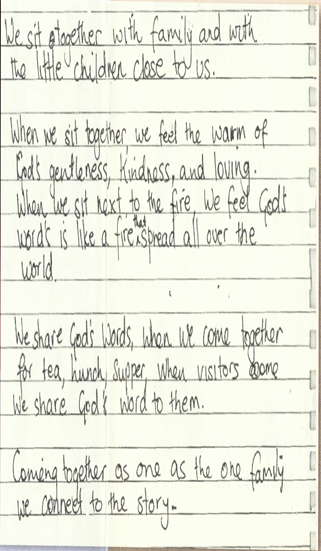 We sit together with family and with
the little children close to us.
When we sit together, we feel the warm of
God's gentleness, Kindness, and loving.
When we sit next to the fire, we feel God's
words is like a fire that spread all over the
world.
We share God's Words, when we come together
for tea, lunch, supper, when visitors come
we share God's word to them.
Coming together as one as the one family
we connect to the story.